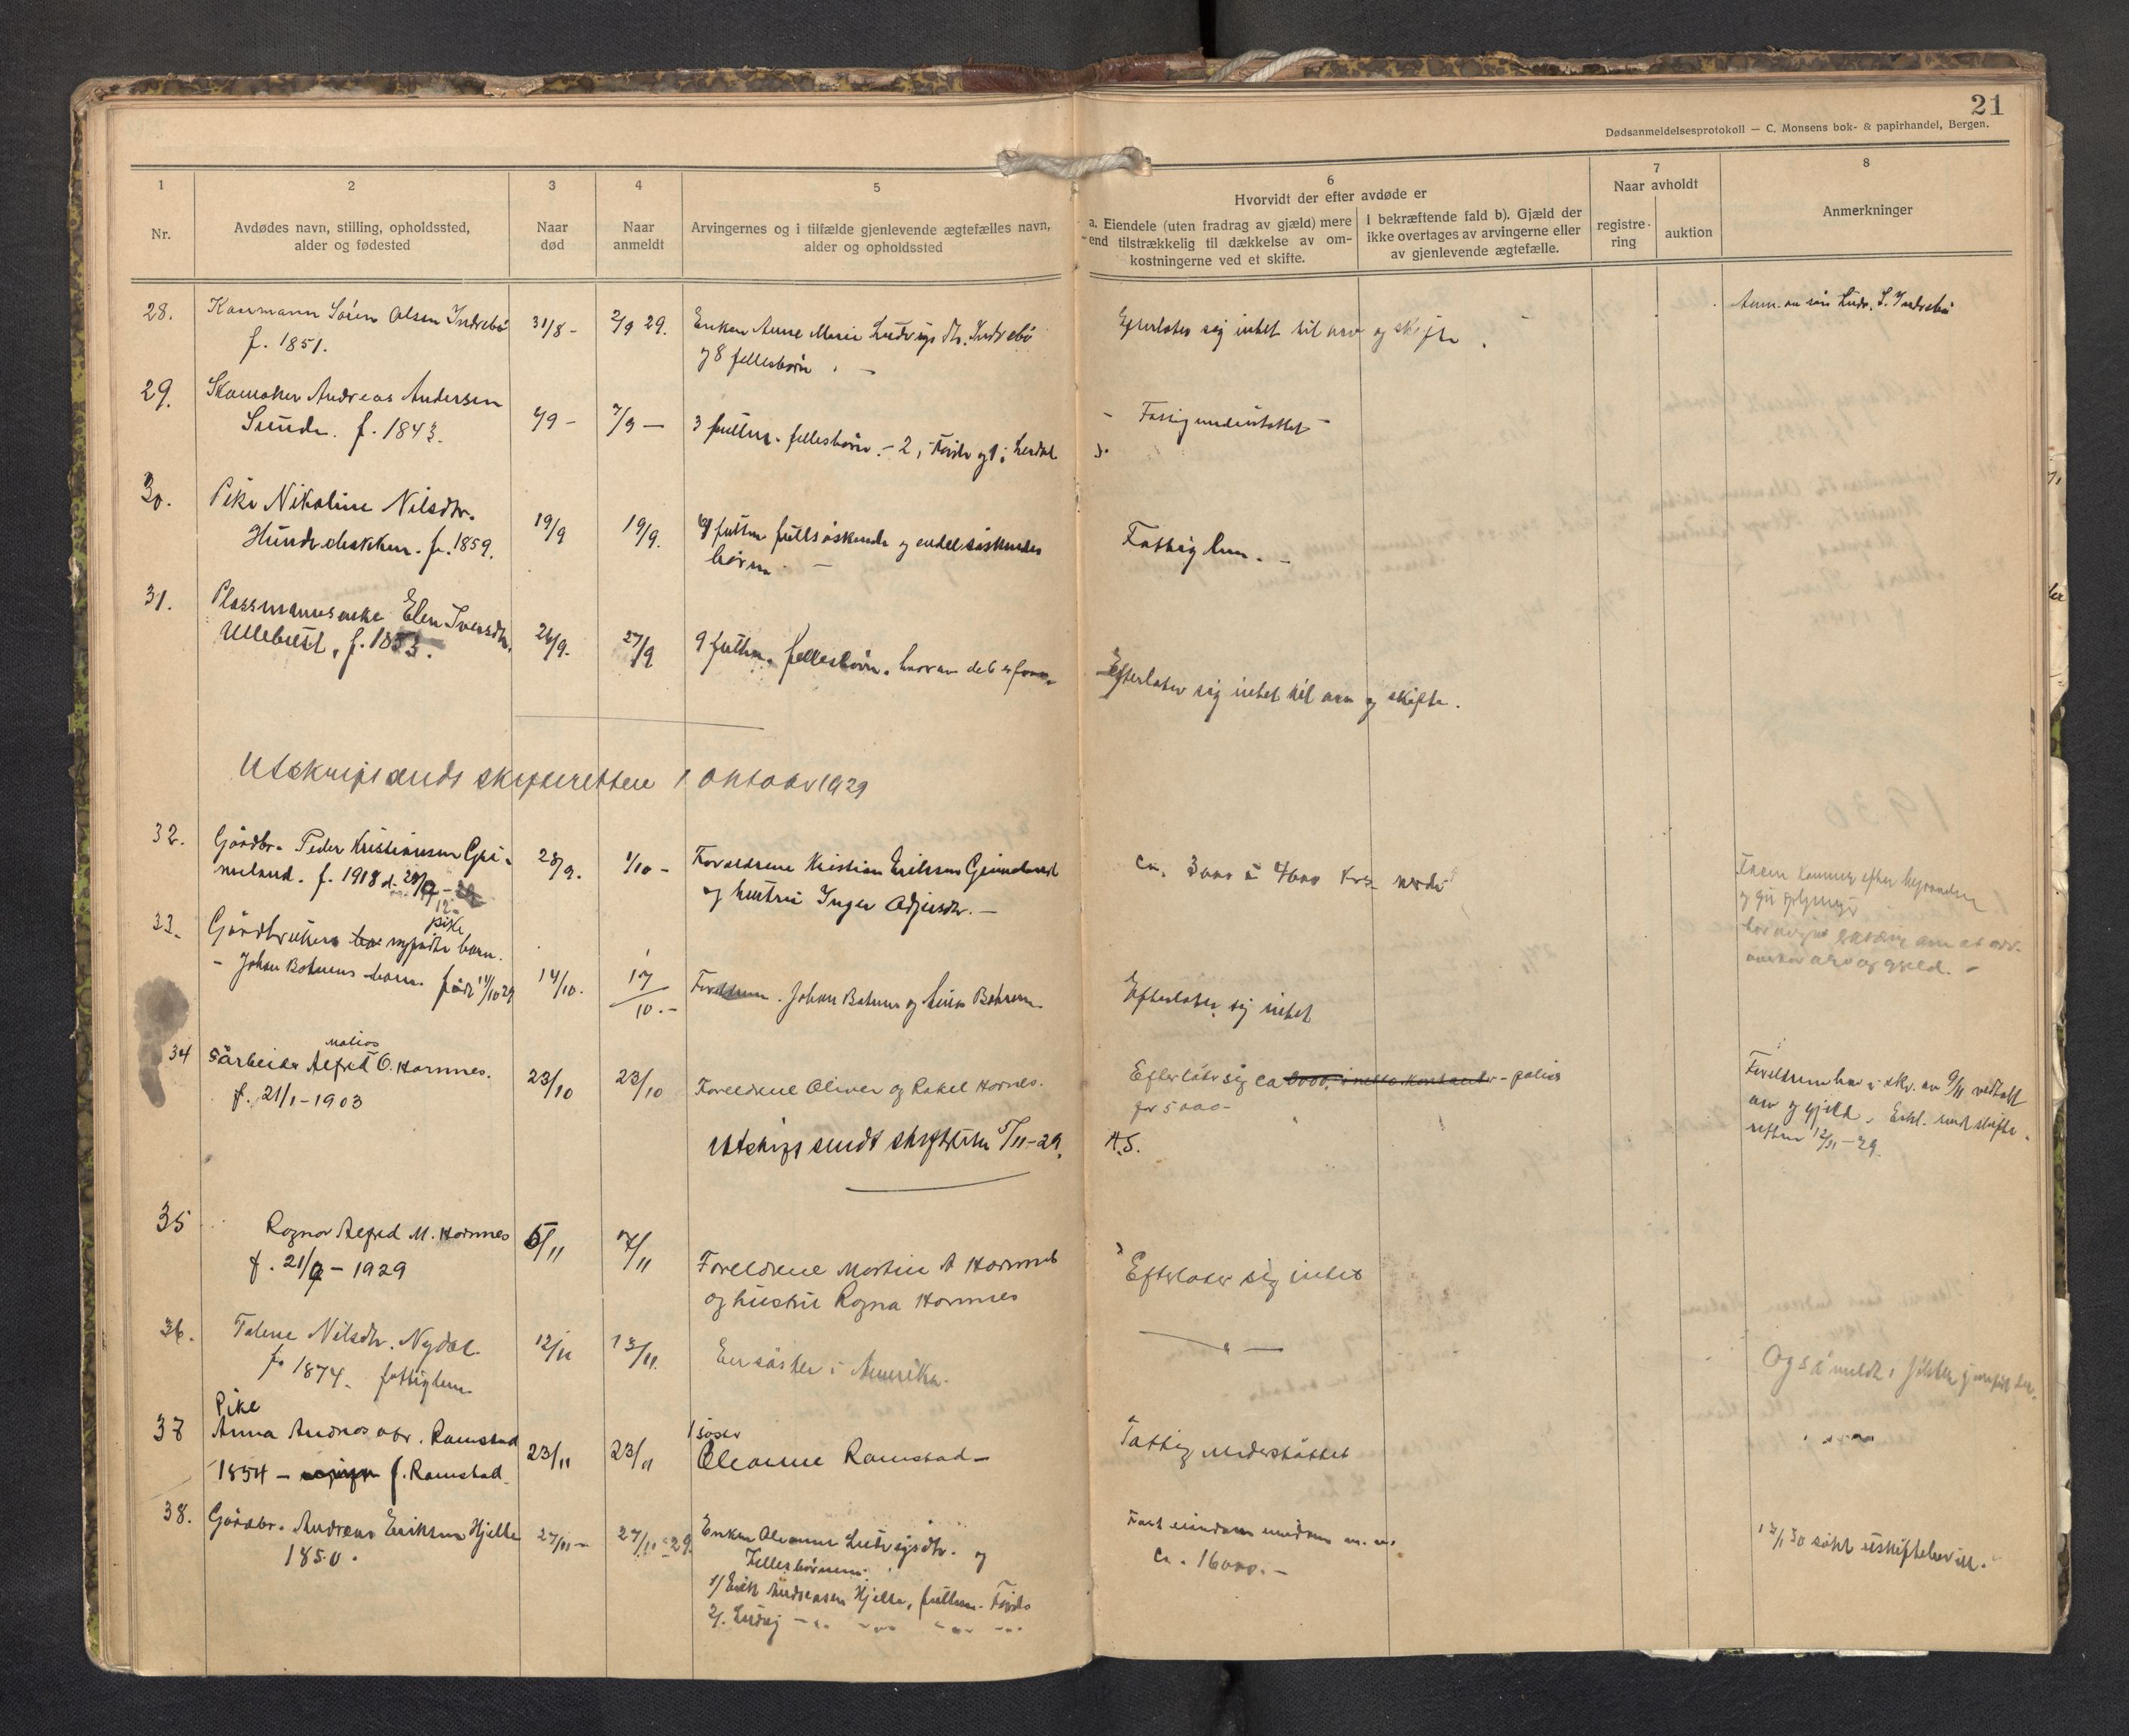 21
Dødsanmeldelsesprotokoll — C. Monsens bok- & papirhandel, Bergen.
1 2 3 4 5 6 7 8
Nr.
Avdødes navn, stilling, opholdssted,
alder og fødested
Naar
død
Naar
anmeldt
Arvingernes og i tilfælde gjenlevende ægtefælles navn,
alder og opholdssted
Hvorvidt der efter avdøde er
a. Eiendele (uten fradrag av gjæld) mere
end tilstrækkelig til dækkelse av om-
kostningerne ved et skifte.
I bekræftende fald b). Gjæld der
ikke overtages av arvingerne eller
av gjenlevende ægtefælle.
Naar avholdt
registre-
ring
auktion
Anmerkninger
28. Kaarmann Søren Olsen Indrebø
f. 1851.
31/8 - 2/9 29.
Enken Anne Marie Ludvigsdtr. Indrebø
og 8 fellesbörn. -
Efterlater sig intet til arv og skifte.
Anm. av sön Ludv. S. Indrebö
29. Skomaker Andreas Andersen
Sunde. f. 1843.
/9 - 7/9 -
3 fullm. fellesbörn. - 2 i Förde og 1 i Lerdal
- Fattigunderstöttet -
30. Pike Nikoline Nilsdtr.
f. 1859.
19/9 19/9.
fullm. fullsöskende og endel söskendes
börn. -
Fattiglem. -
31. Plassmannsenke Elen Iversdtr.
f. 1853.
26/9. 27/9
9 fullm. fellesbörn. hvorav de 6 er
Efterlater sig intet til arv og skifte.
Utskrift sendt skifteretten 1 oktober 1929
32. Gårdbr. Peder Kristiansen Gri-
meland. f. 1918 d. 28/9 -
28/9. 1/10 -
Foreldrene Kristian Eriksen Grimeland
og hustru Inger -
ca. 3000 à 4000 Krs
33. Gårdbruker nyfödte barn.
pike
- Johan Botnens barn. föd 14/10 29
14/10. 17/10. -
Foreldrene. Johan Botnen og Botnen
Efterlater sig intet
34 Malios
Alfred O. Hornnes.
f. 21/1 - 1903
23/10 23/10
Foreldrene Oliver og Rakel Hornnes.
Efterlater sig ca - polise
for 5000 -
Foreldrene har i skr. av 9/11 vedtatt
arv og gjeld. Erkl. sendt skifte-
retten 12/11 - 29.
Utskrift sendt skifteretten 5/11 - 29.
A.S.
35 Ragnar Alfred M. Hornnes
f. 21/9 - 1929
5/11 7/11
Foreldrene Martin A Hornnes
og hustru Ragna Hornnes
Efterlater sig intet
36. Talene Nilsdtr. Nydal.
f. 1874. fattiglem
12/11 13/11.
En söster i Amerika.
- " -
Også meldt i Jölster
37 Pike
Anna Andreasdtr. Ramstad
1854 - f. Ramstad
23/11 23/11
1 söster
Oleanne Ramstad -
Fattig understöttet
38. Gårdbr. Andreas Eriksen Hjelle
1850.
27/11 - 27/11 - 29.
Enken Oleanne Ludvigsdtr. og
Fellesbörnene:
1/ Erik Andreasen Hjelle, fullm. Förde
2/. Ludvig - " - " - " - "
Fast eiendom
ca. 16000. -
13/1 30 sökt uskiftebevill.